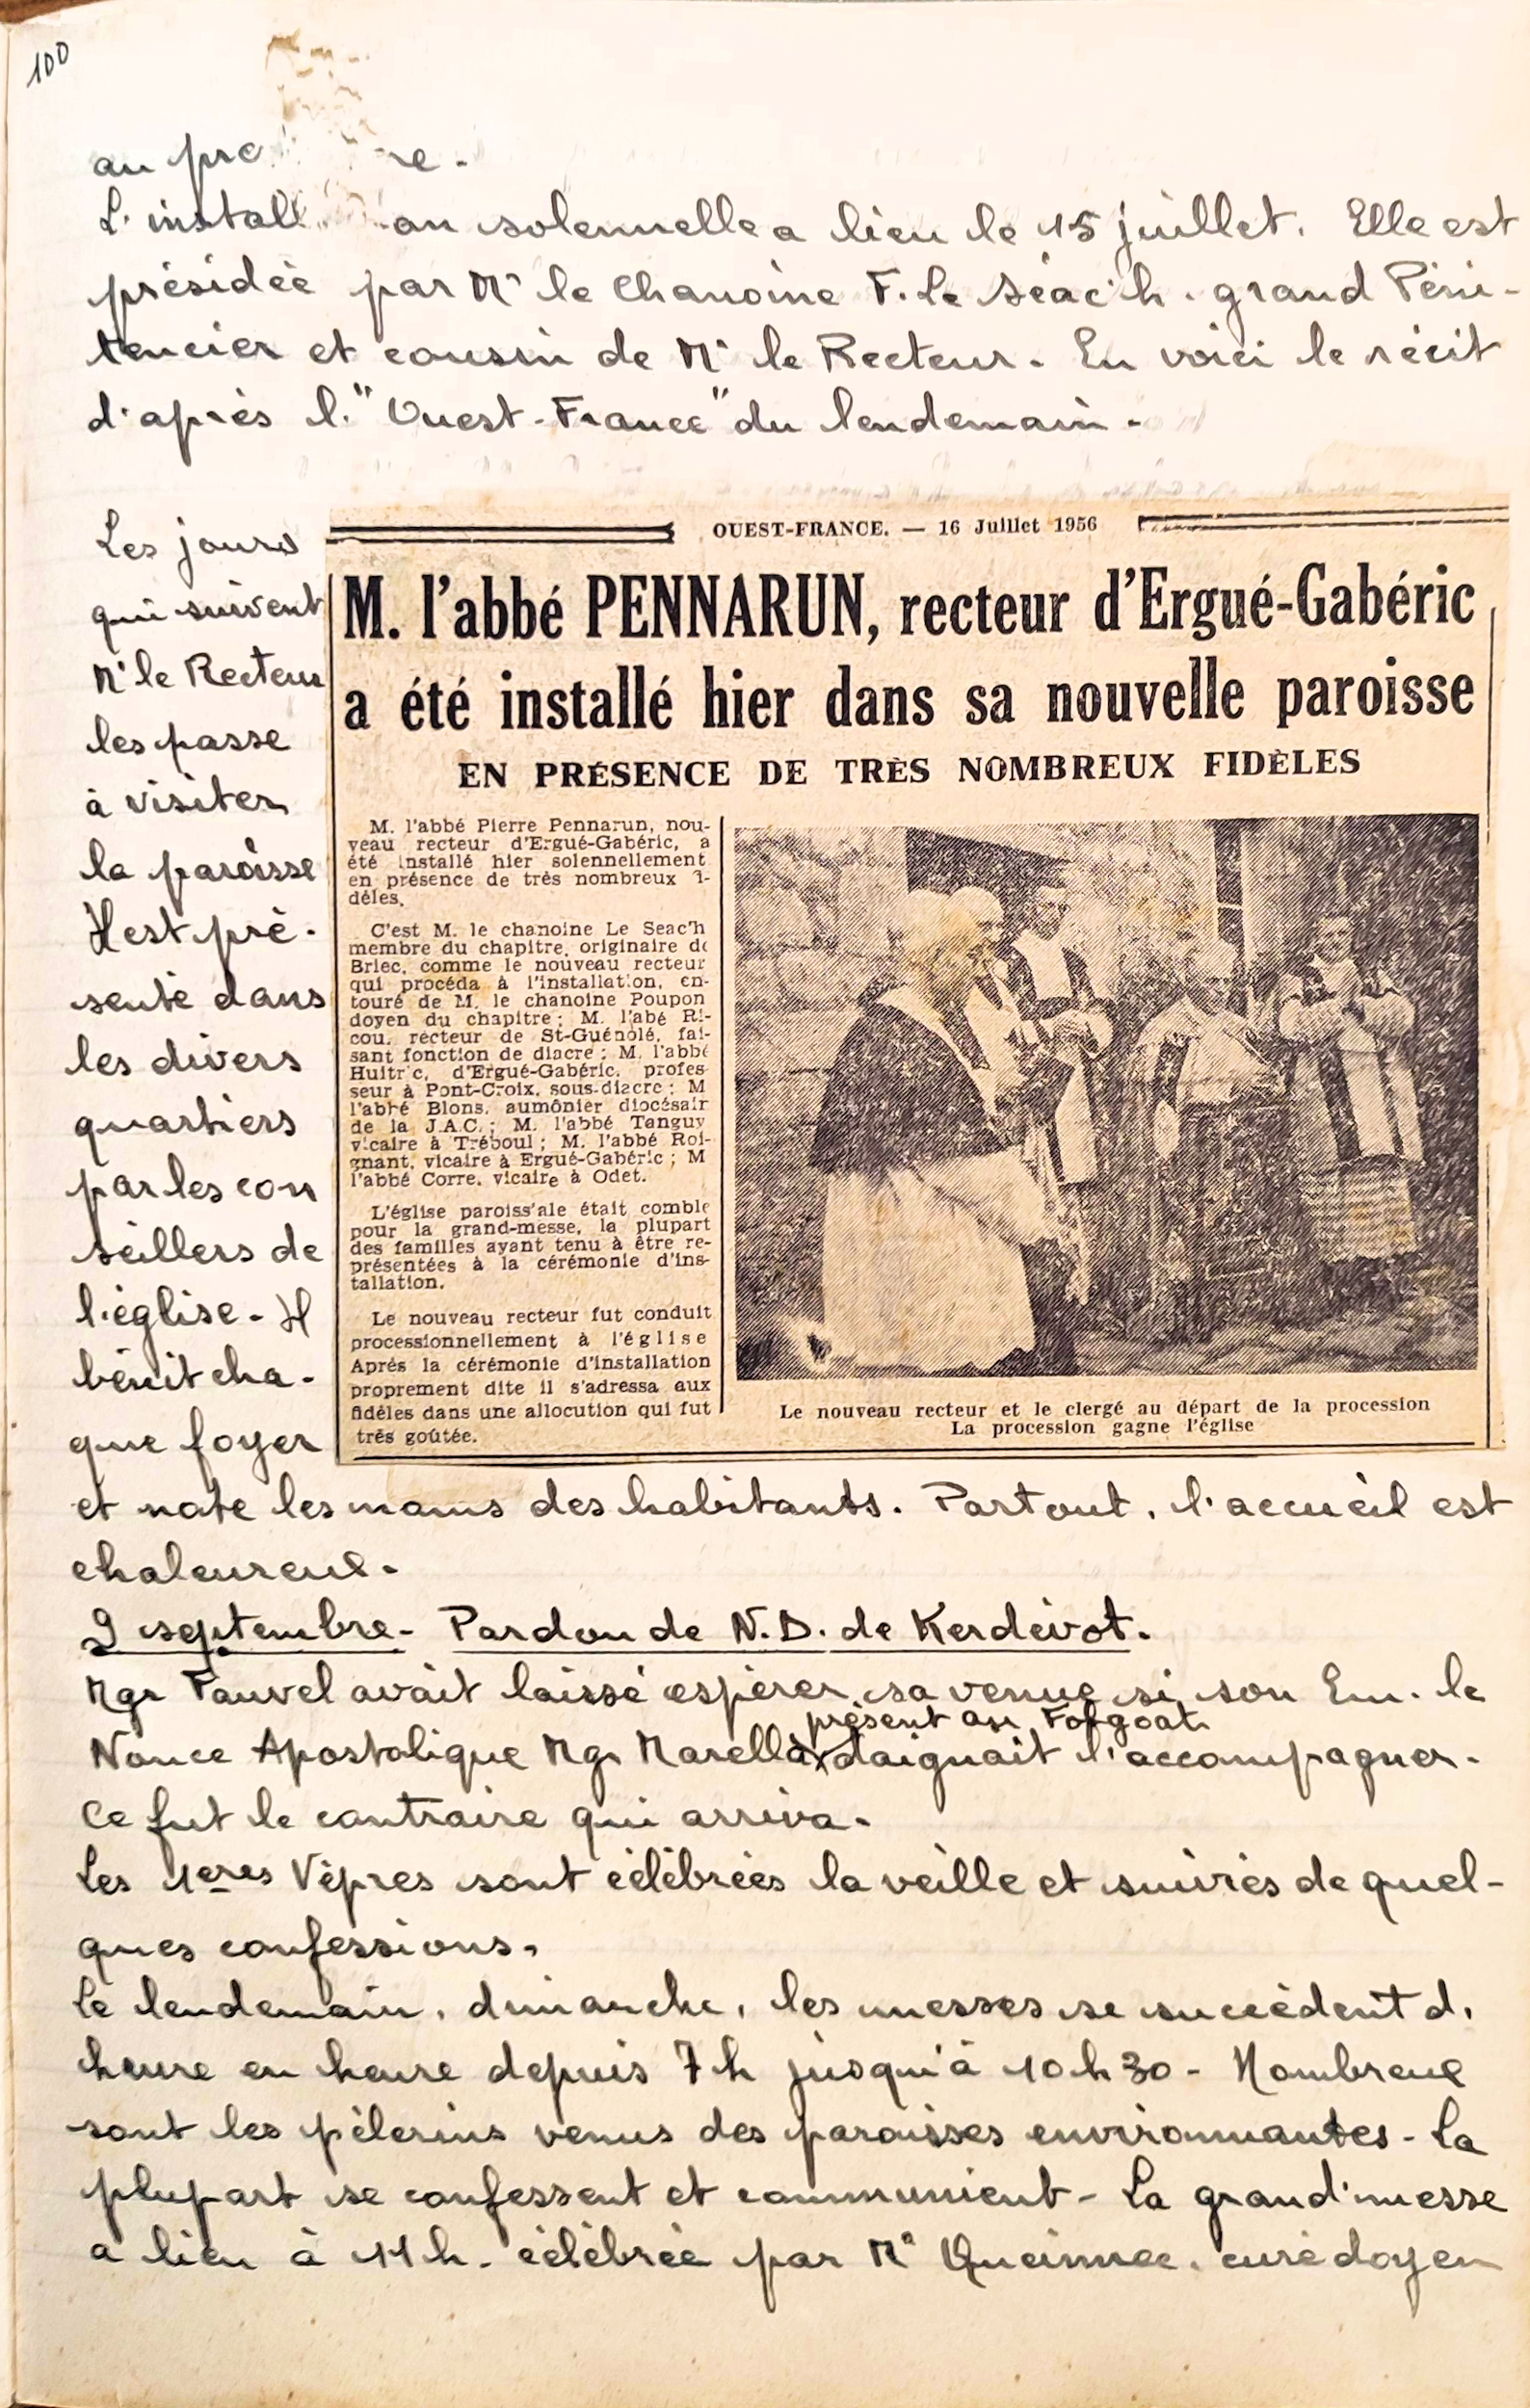 100
au
L'install on solennelle a lieu le 15 juillet. Elle est
présidée par Mr le Chanoine F. Le Séac'h. grand Péni-
tencier et cousin de Mr le Recteur. En voici le récit
d'après l'"Ouest-France" du lendemain.
Les jours
qui suivent
Mr le Recteur
les passe
à visiter
la paroisse
Il est pré-
senté dans
les divers
quartiers
par les con
seillers de
l'église. Il
bénit cha-
que foyer
OUEST-FRANCE. — 16 Juillet 1956
M. l'abbé PENNARUN, recteur d'Ergué-Gabéric
a été installé hier dans sa nouvelle paroisse
EN PRÉSENCE DE TRÈS NOMBREUX FIDÈLES
M. l'abbé Pierre Pennarun, nou-
veau recteur d'Ergué-Gabéric, a
été installé hier solennellement
en présence de très nombreux fi-
dèles.
C'est M. le chanoine Le Seac'h
membre du chapitre, originaire de
Briec, comme le nouveau recteur
qui procéda à l'installation, en-
touré de M. le chanoine Poupon
doyen du chapitre ; M. l'abé Ri-
cou, recteur de St-Guénolé, fai-
sant fonction de diacre ; M. l'abbé
Huitric, d'Ergué-Gabéric, profes
seur à Pont-Croix, sous-diacre ; M
l'abbé Blons, aumônier diocésair
de la J.A.C. ; M. l'abbé Tanguy
vicaire à Tréboul ; M. l'abbé Roi-
gnant, vicaire à Ergué-Gabéric ; M
l'abbé Corre, vicaire à Odet.
L'église paroissiale était comble
pour la grand-messe, la plupart
des familles ayant tenu à être re-
présentées à la cérémonie d'ins-
tallation.
Le nouveau recteur fut conduit
processionnellement à l'église
Après la cérémonie d'installation
proprement dite il s'adressa aux
fidèles dans une allocution qui fut
très goûtée.
Le nouveau recteur et le clergé au départ de la procession
La procession gagne l'église
et note les noms des habitants. Partout, l'accueil est
chaleureux.
9 septembre. Pardon de N.D. de Kerdévot.
Mgr Fauvel avait laissé espérer sa venue si son Em. le
présent au Folgoat
Nonce Apostolique Mgr Marella x daignait l'accompagner.
Ce fut le contraire qui arriva.
Les 1eres Vêpres sont célébrées la veille et suivies de quel-
ques confessions.
Le lendemain, dimanche, les messes se succèdent d'
heure en heure depuis 7h jusqu'à 10h30 - Nombreux
sont les pèlerins venus des paroisses environnantes - La
plupart se confessent et communient - La grand'messe
a lieu à 11h. célébrée par Mr Queinnec. curé doyen